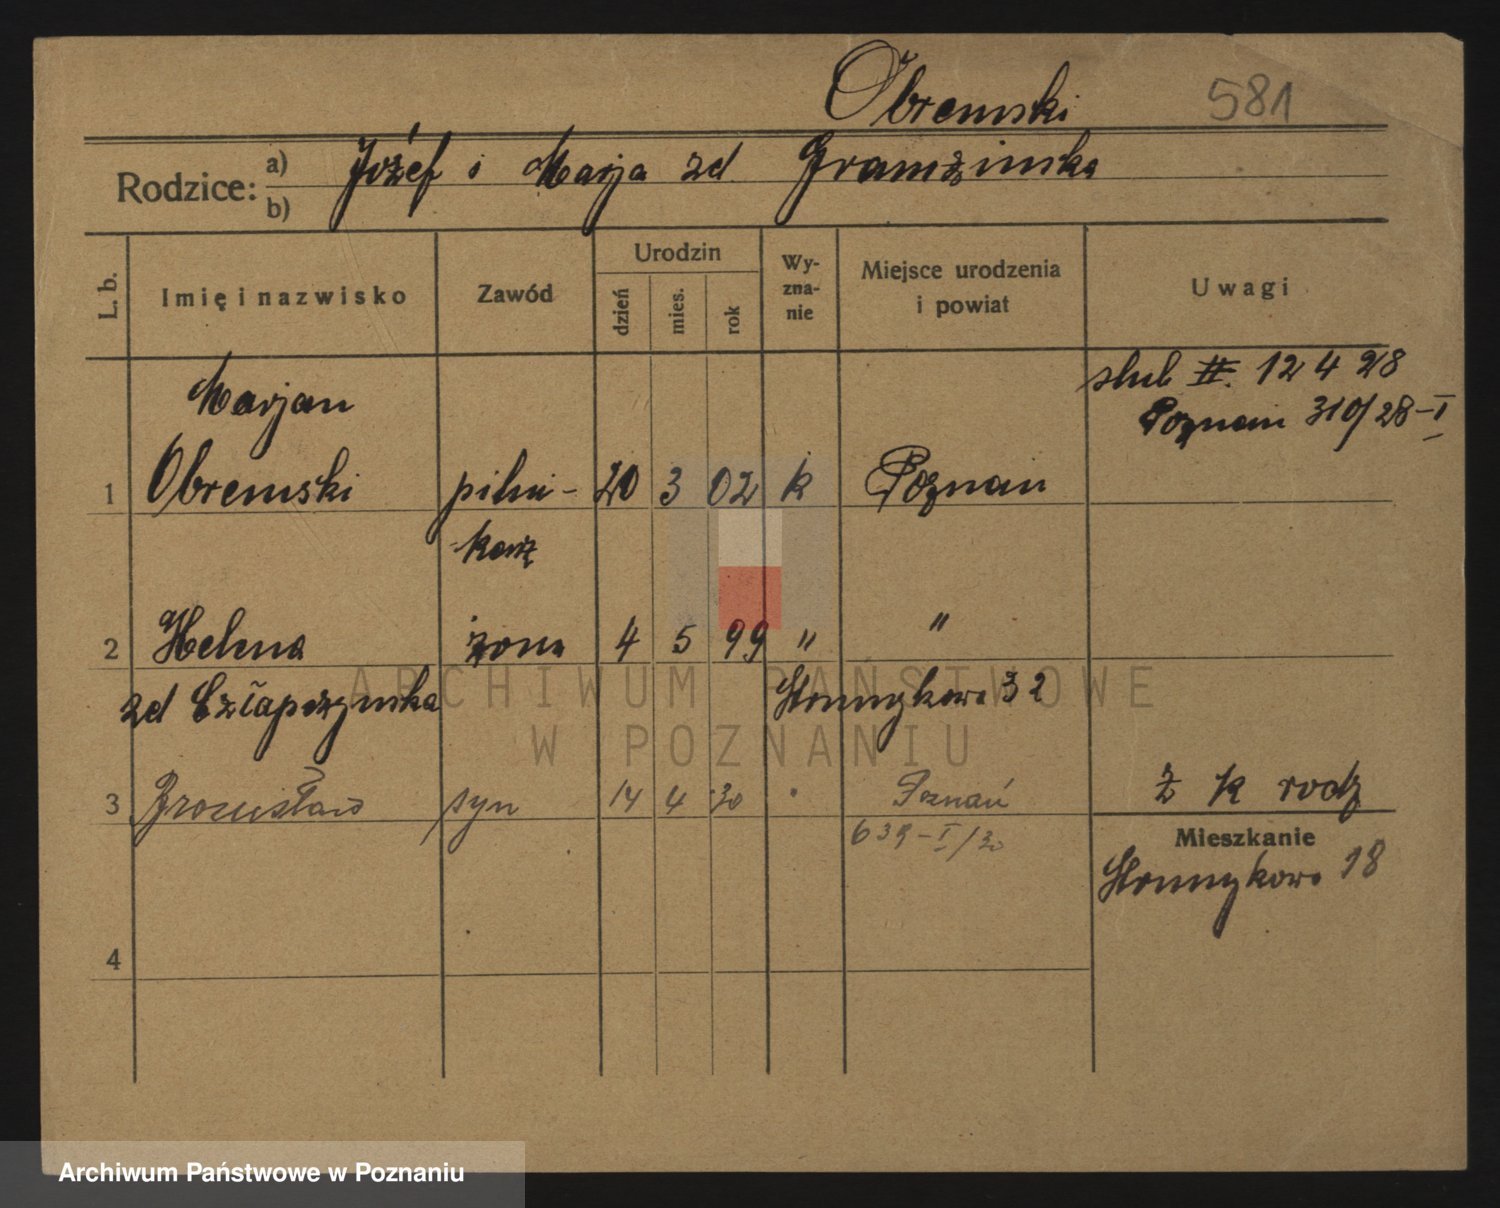 Obremski 581
Rodzice: a) Józef i Marja zd Gramzinska
b)
L. b. Imię i nazwisko Zawód Urodzin dzień mies. rok Wyznanie Miejsce urodzenia i powiat Uwagi
ślub II. 12 4 28
Poznań 310/28-I
Marjan
1 Obremski pilni- 20 3 02 k Poznań
karz
2 Helena żona 4 5 99 " "
zd 32
3 Bronisław syn 14 4 30 " Poznań
639-I/30
ż k rodz
Mieszkanie
18
4
ARCHIWUM PAŃSTWOWE
W POZNANIU
Archiwum Państwowe w Poznaniu